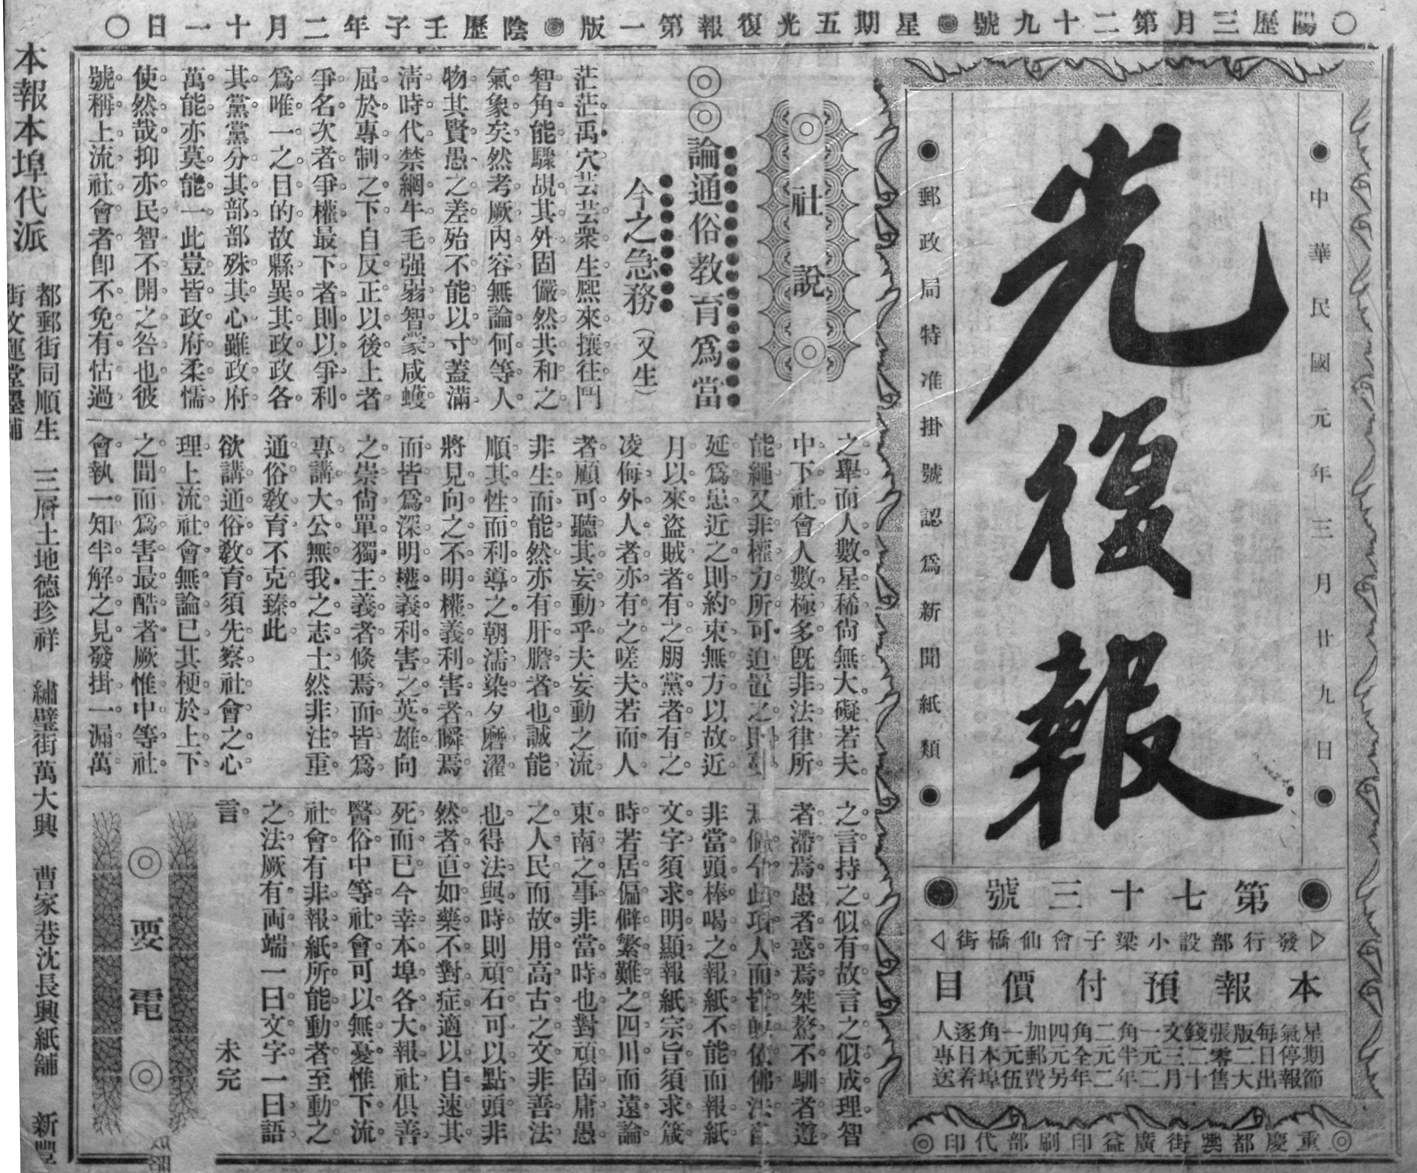 〇陽歷三月第二十九號◉星期五光復報第一版◉陰歷壬子年二月十一日〇
●中華民國元年三月廿九日●
光復報
●郵政局特准掛號認爲新聞紙類●
第七十三號
發行部設小梁子會仙橋街
本報預付價目
星期節
氣停報
每日出
版二大
張零售
錢二十
文三月
一元二
角半年
二元二
角全年
四元另
加郵費
一元伍
角本埠
逐日着
人專送
◎重慶都郵街廣益印刷部代印◎
◎社說◎
◎◎論通俗教育爲當
今之急務（又生）
茫茫禹穴。芸芸衆生。熙來攘往。鬥
智角能。驟覘其外。固儼然共和之
氣象矣。然考厥內容。無論何等人
物。其賢愚之差。殆不能以寸。蓋滿
淸時代。禁網牛毛。强弱智蒙。咸蠖
屈於專制之下。自反正以後。上者
爭名。次者爭權。最下者則以爭利
爲唯一之目的。故縣異其政。政各
其黨。黨分其部。部殊其心。雖政府
萬能。亦莫能一。此豈皆政府柔懦
使然哉。抑亦民智不開之咎也。彼
號稱上流社會者。卽不免有怙過
之舉。而人數星稀。尙無大礙。若夫
中下社會。人數極多。旣非法律所
能繩。又非權力所可迫。置之則
延爲患。近之則約束無方。以故近
月以來。盜賊者有之。朋黨者有之。
凌侮外人者亦有之。嗟夫。若而人
者。顧可聽其妄動乎。夫妄動之流。
非生而能然。亦有肝膽者也。誠能
順其性而利導之。朝濡染夕磨濯。
將見向之不明權義利害者。瞬焉
而皆爲深明權義利害之英雄。向
之崇尙單獨主義者。倏焉而皆爲
專講大公無我之志士。然非注重
通俗教育不克臻此
欲講通俗教育。須先察社會之心
理。上流社會。無論已。其梗於上下
之間而爲害最酷者。厥惟中等社
會。執一知半解之見。發掛一漏萬
之言。持之似有故。言之似成理。智
者滯焉。愚者惑焉。桀驁不馴者遵
非當頭棒喝之報紙不能。而報紙
文字須求明顯。報紙宗旨須求箴
時。若居偏僻繁難之四川。而遠論
東南之事。非當時也。對頑固庸愚
之人民。而故用高古之文。非善法
也。得法與時。則頑石可以點頭。非
然者。直如藥不對症。適以自速其
死而已。今幸本埠各大報社。俱善
醫俗。中等社會可以無憂。惟下流
社會。有非報紙所能動者。至動之
之法。厥有両端。一曰文字。一曰語
言。　未完
◎要電◎
本報本埠代派
都郵街同順生　三層土地德珍祥　繡璧街萬大興　曹家巷沈長興紙舖　新豐